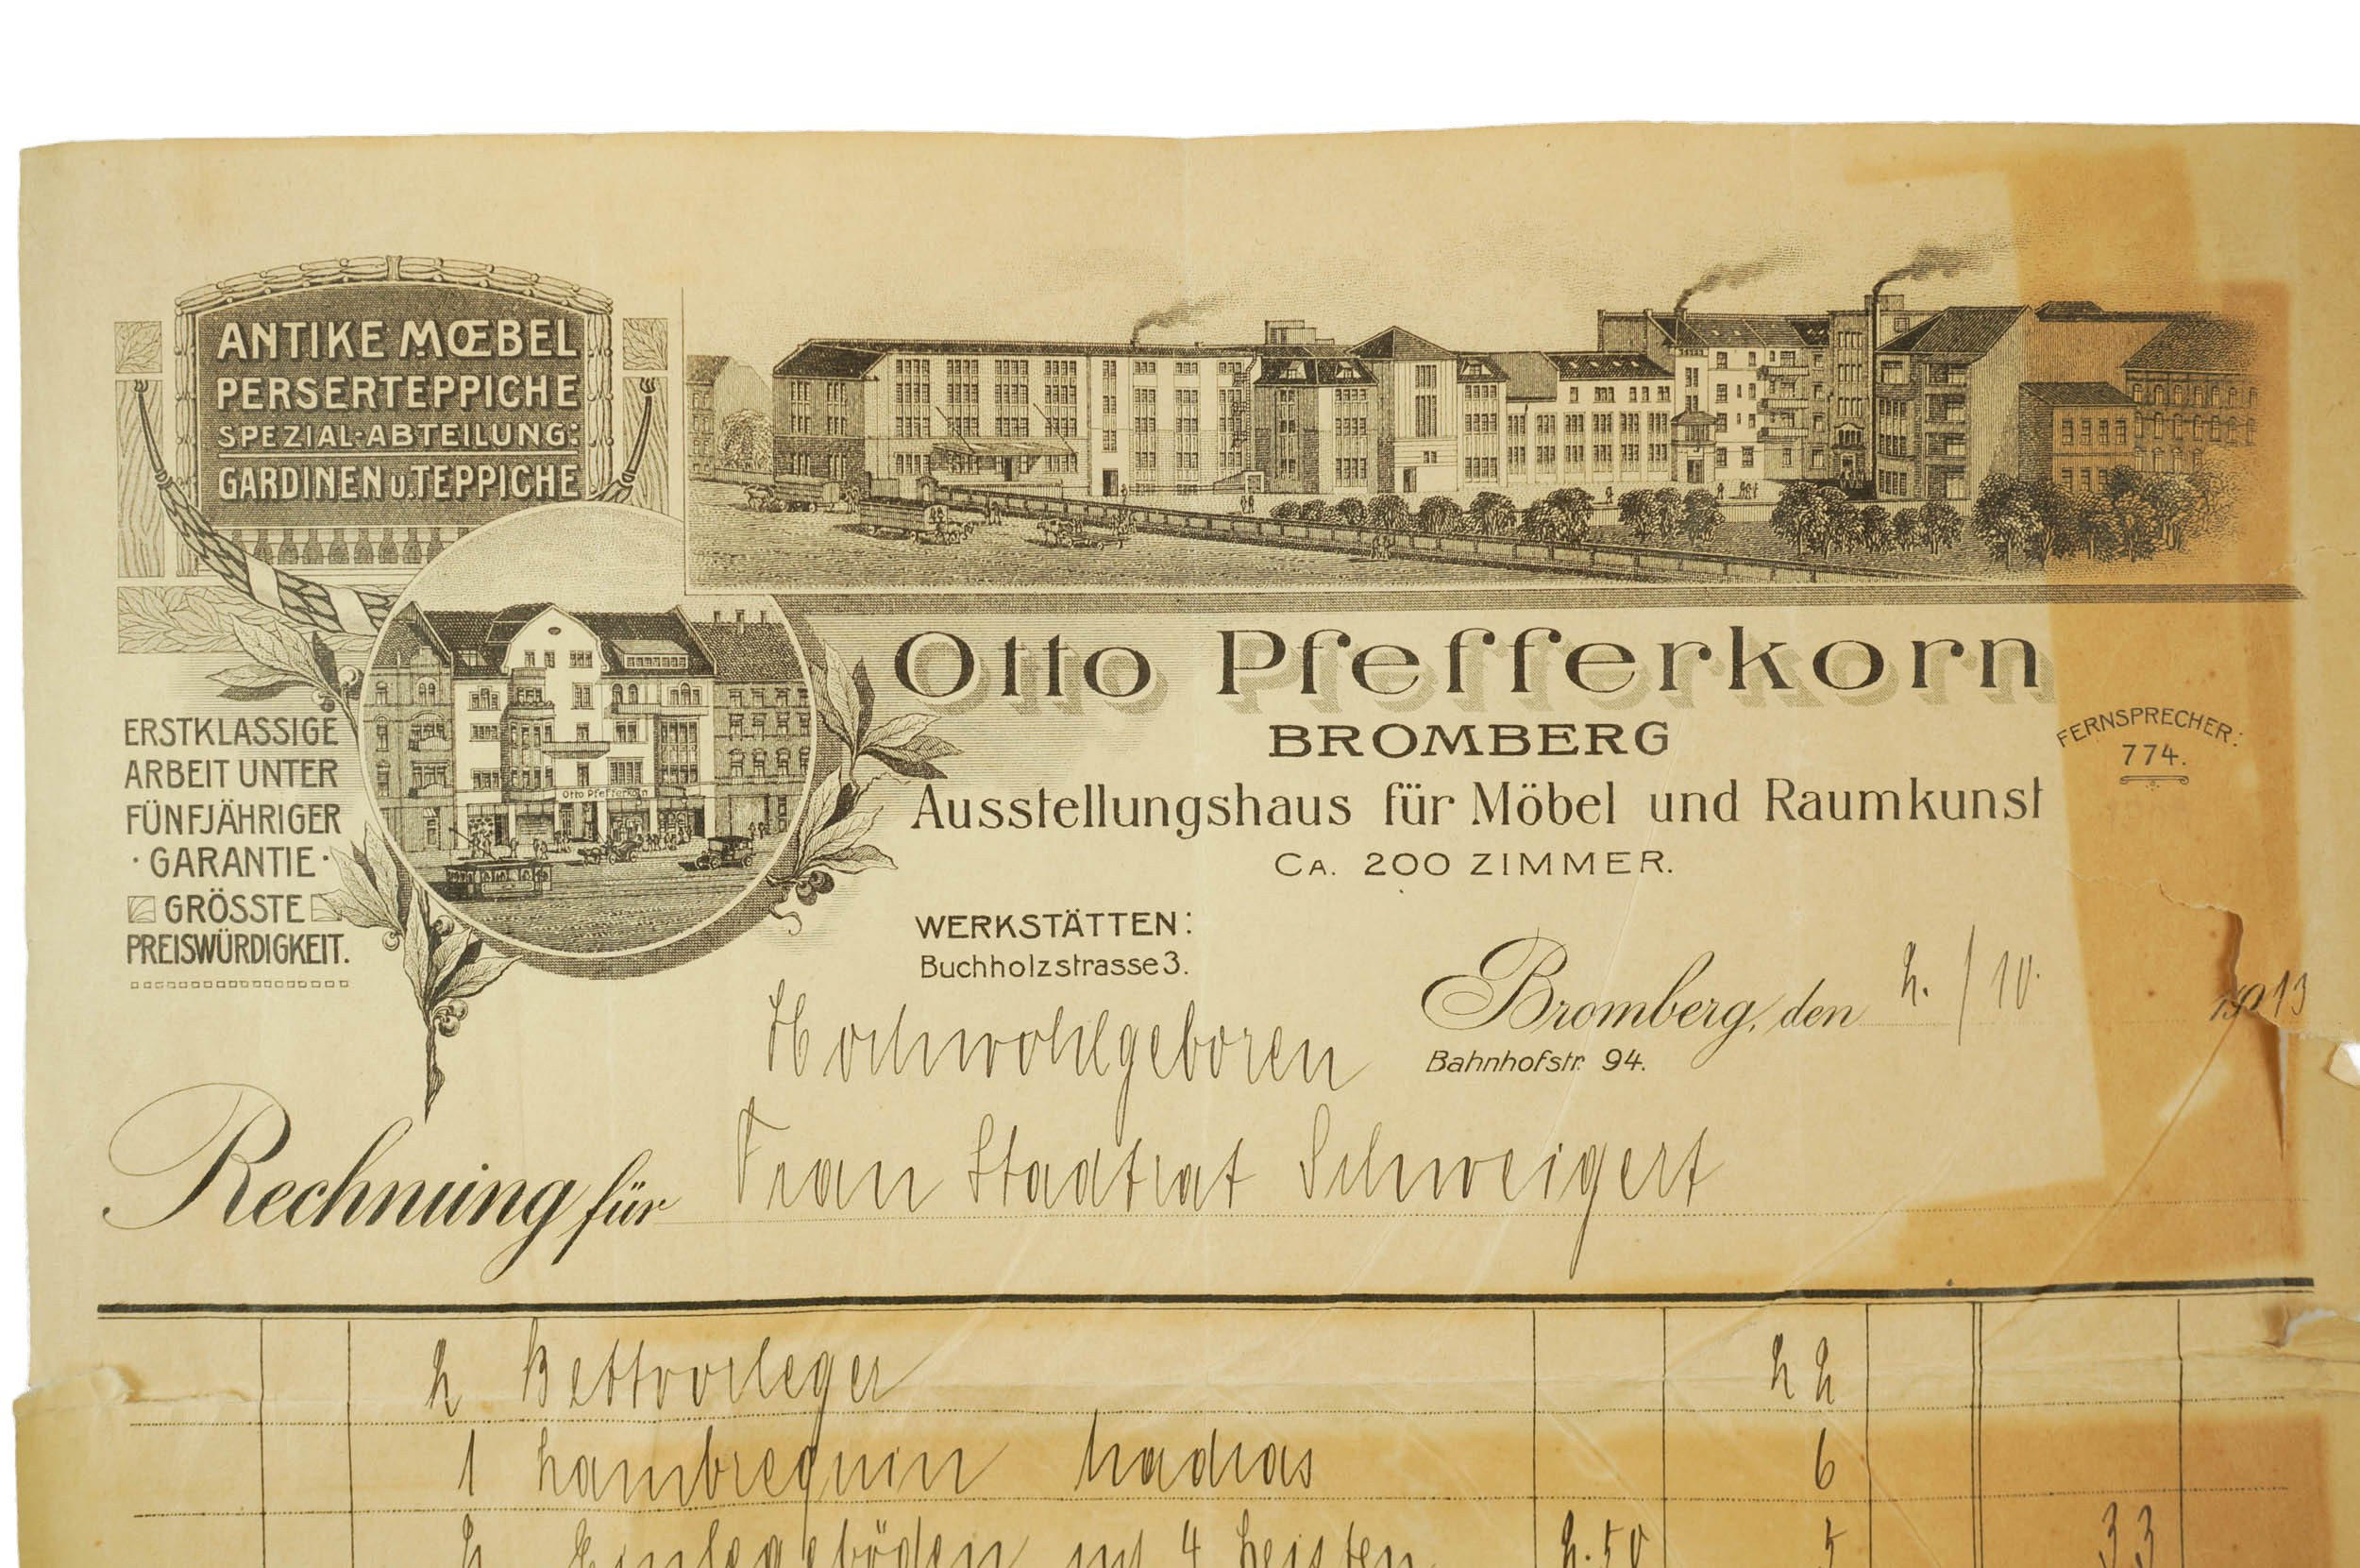 ANTIKE MŒBEL
PERSERTEPPICHE
SPEZIAL-ABTEILUNG:
GARDINEN u. TEPPICHE
Otto Pfefferkorn
ERSTKLASSIGE
ARBEIT UNTER
FÜNFJÄHRIGER
· GARANTIE ·
GRÖSSTE
PREISWÜRDIGKEIT.
Otto Pfefferkorn
BROMBERG
Ausstellungshaus für Möbel und Raumkunst
CA. 200 ZIMMER.
FERNSPRECHER:
774.
WERKSTÄTTEN:
Buchholzstrasse 3.
Bromberg, den 2./10. 1913
Bahnhofstr. 94.
Hochwohlgeboren
Rechnung für Frau Stadtrat Schweigert
2 Bettvorleger 22
1 Lambrequin Madras 6
2 Einlegeböden mit 4 Leisten 2.50 5 33